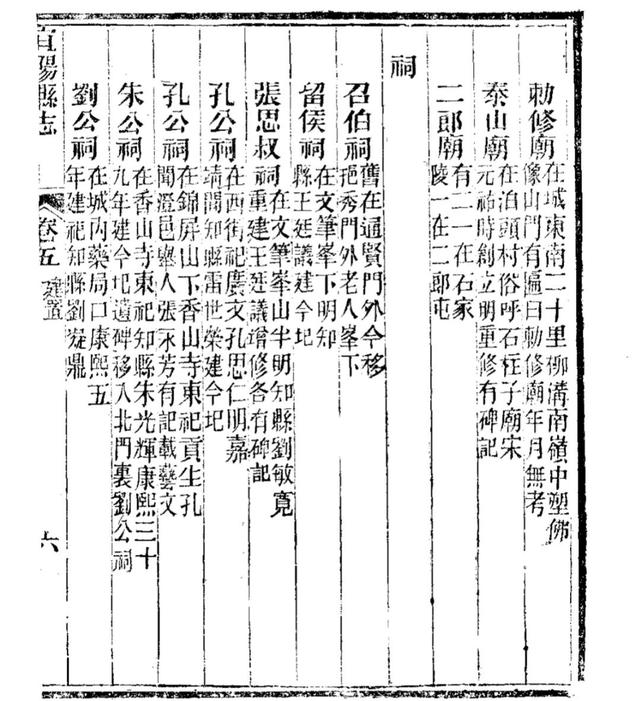 勅修廟 在城東南二十里柳溝南嶺中塑佛
像山門有匾曰勅修廟年月無考
泰山廟 在泊頭村俗呼石柱子廟宋
元祐時創立明重修有碑記
二郎廟 有二一在石家
陵一在二郎屯
祠
召伯祠 舊在通賢門外今移
挹秀門外老人峯下
留侯祠 在文筆峯下明知
縣王廷議建今圮
張思叔祠 在文筆峯山半明知縣劉敏寬
重建王廷議增修各有碑記
孔公祠 在西街祀廣文孔思仁明嘉
靖間知縣雷世榮建今圮
孔公祠 在錦屏山下香山寺東祀貢生孔
聞澄邑舉人張永芳有記載藝文
朱公祠 在香山寺東祀知縣朱光輝康熙三十
九年建今圮遺碑移入北門裏劉公祠
劉公祠 在城內藥局口康熙五
年建祀知縣劉凝鼎
宜陽縣志 卷五 建置 六